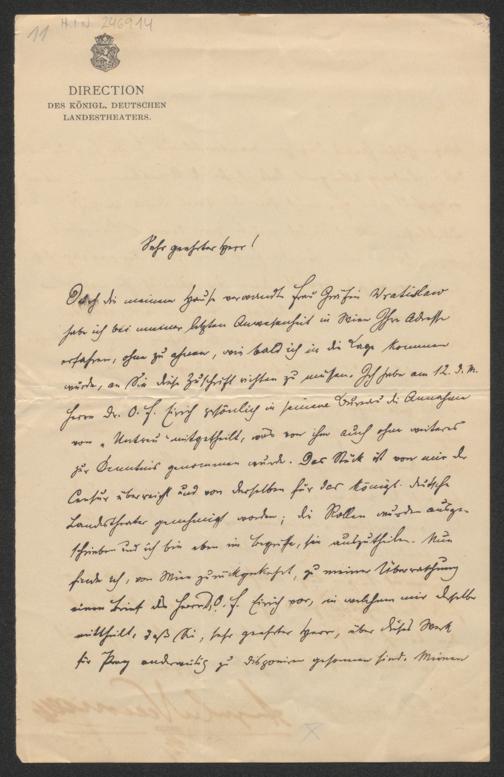 11
H.I.N. 246914
DIRECTION
DES KÖNIGL. DEUTSCHEN
LANDESTHEATERS.
Sehr geehrter Herr!
Durch die meinem Hause verwandte Frau Gräfin Wratislaw
habe ich bei meiner letzten Anwesenheit in Wien Ihre Adresse
erfahren, ohne zu ahnen, wie bald ich in die Lage kommen
würde, an Sie diese Zuschrift richten zu müssen. Ich habe am 12. d. M.
Herrn Dr. O. F. Eirich persönlich in seinem Bureau die Annahme
von „Untreu" mitgetheilt, was von ihm auch ohne weiteres
zur Kenntnis genommen wurde. Das Stück ist von mir der
Censur überreicht und von derselben für das königl. deutsche
Landestheater genehmigt worden; die Rollen wurden ausge-
schrieben und ich bin eben im Begriffe, sie auszutheilen. Nun
finde ich, von Wien zurückgekehrt, zu meiner Überraschung
einen Brief des Herrn Dr. O. F. Eirich vor, in welchem mir derselbe
mittheilt, daß Sie, sehr geehrter Herr, über dieses Werk
für Prag anderweitig zu disponiren gesonnen sind. Meinen